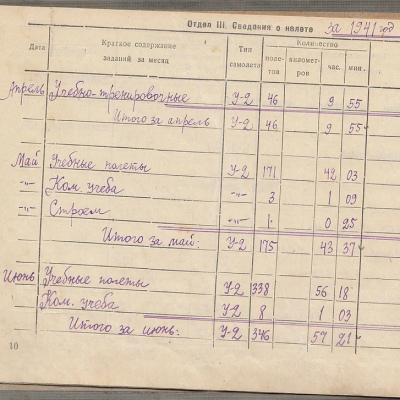 Отдел III. Сведения о налете за 1941 год
Дата Краткое содержание заданий за месяц Тип самолета Количество
полетов километров час. мин.
Апрель Учебно-тренировочные У-2 46 9 55
Итого за апрель У-2 46 9 55
Май Учебные полеты У-2 171 42 03
-"- Ком. учеба -"- 3 1 09
-"- Строем -"- 1 0 25
Итого за май: У-2 175 43 37
Июнь Учебные полеты У-2 338 56 18
Ком. учеба У-2 8 1 03
Итого за июнь: У-2 346 57 21
10